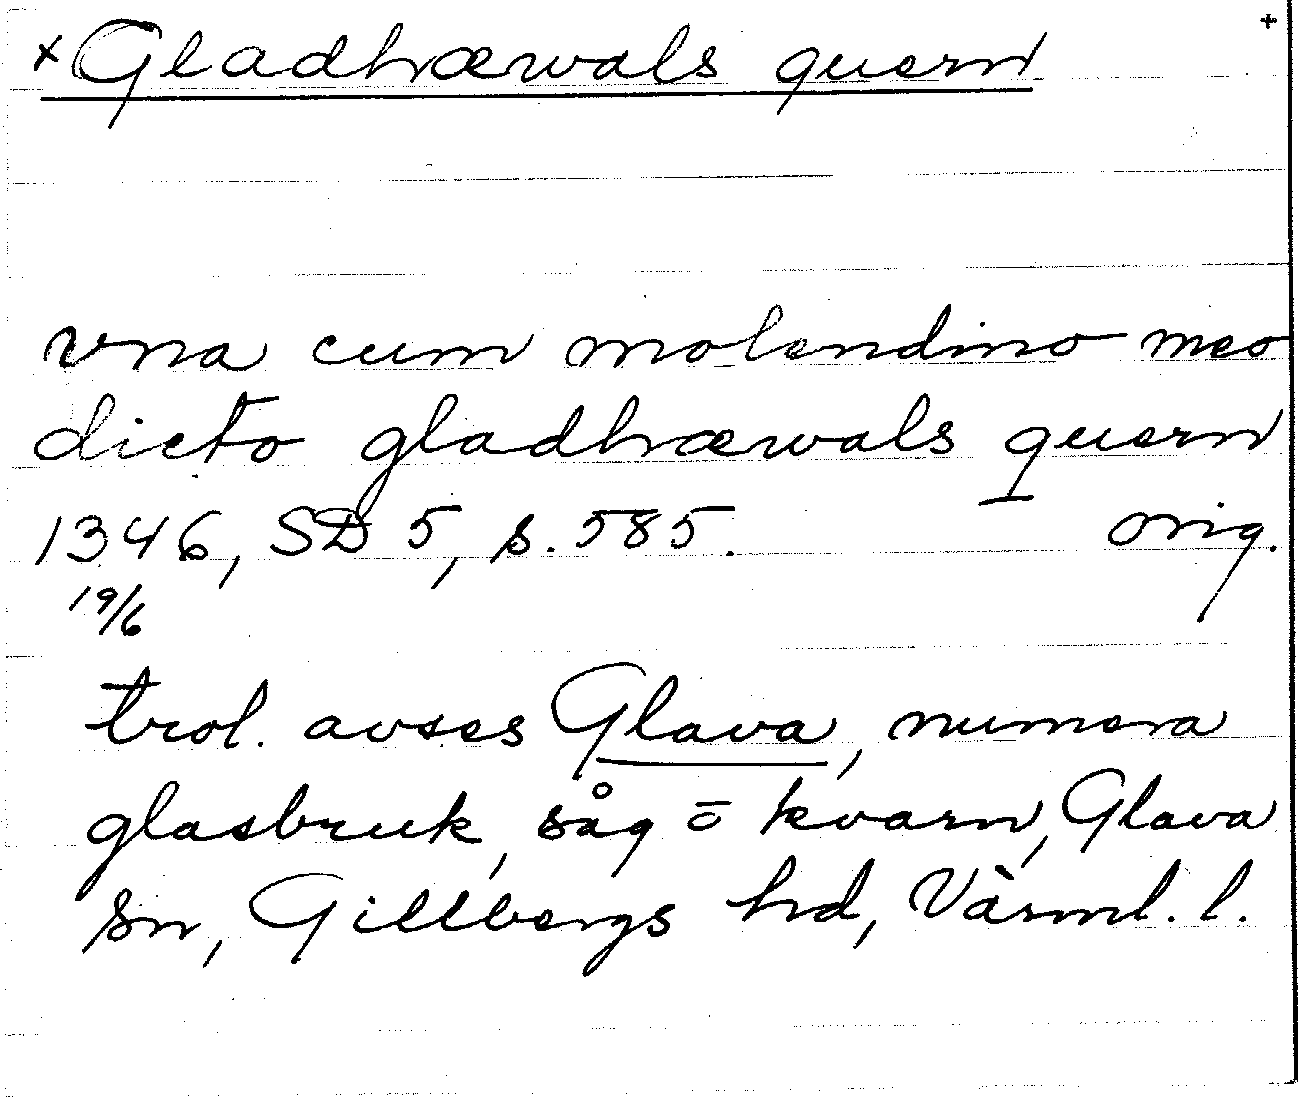 ×Gladhæwals quern +
vna cum molendino meo
dicto gladhæwals quern
1346, SD 5, s. 585. orig.
19/6
trol. avses Glava, numera
glasbruk, såg o kvarn, Glava
sn, Gillbergs hd, Värml. l.